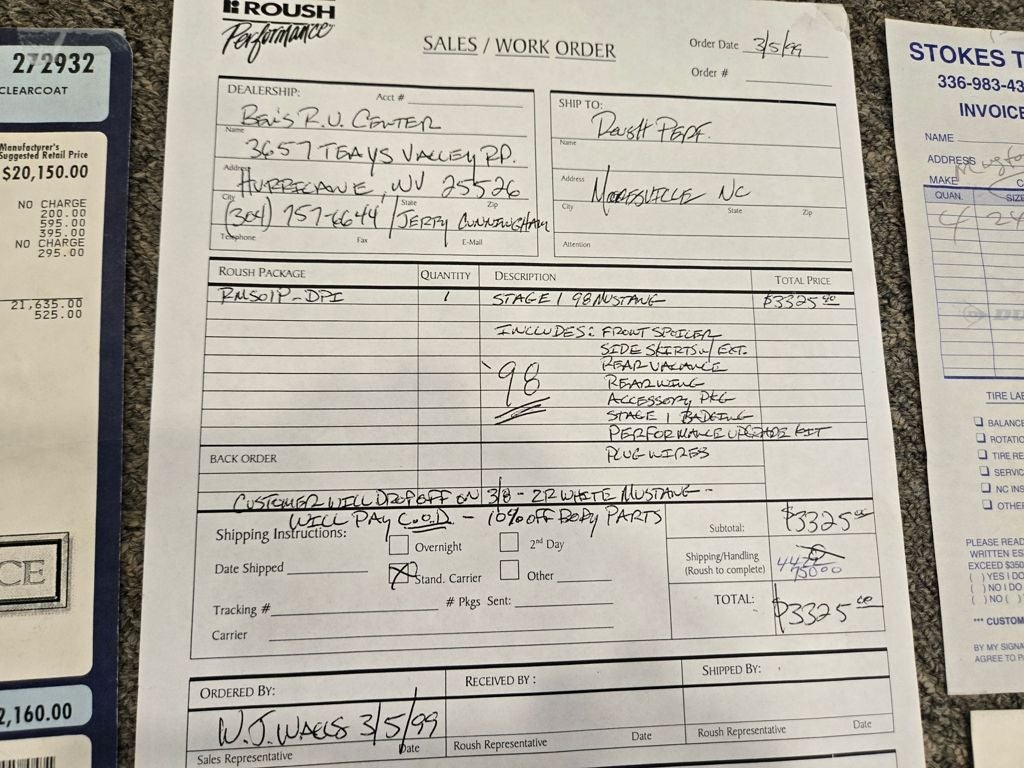 272932
CLEARCOAT
Manufacturer's
Suggested Retail Price
$20,150.00
NO CHARGE
200.00
595.00
395.00
NO CHARGE
295.00
21,635.00
525.00
CE
2,160.00
ROUSH
Performance
SALES / WORK ORDER
Order Date 3/5/99
Order #
DEALERSHIP: Acct #
Ben's R.V. Center
Name
3657 TEAYS VALLEY RD.
Address
HURRICANE, WV 25526
City State Zip
(304) 757-6644 / JERRY CUNNINGHAM
Telephone Fax E-Mail
SHIP TO:
Roush PERF.
Name
Address
MOORESVILLE NC
City State Zip
Attention
ROUSH PACKAGE QUANTITY DESCRIPTION TOTAL PRICE
RMS01P-DPI 1 STAGE 1 98 MUSTANG $3325.00
INCLUDES: FRONT SPOILER
SIDE SKIRTS W/ EXT.
REAR VALANCE
'98
REAR WING
ACCESSORY PKG
STAGE 1 BADGING
PERFORMANCE UPGRADE KIT
BACK ORDER PLUG WIRES
CUSTOMER WILL DROP OFF ON 3/8 - 2R WHITE MUSTANG -
WILL PAY C.O.D. - 10% OFF BODY PARTS
Shipping Instructions:
Overnight 2nd Day
Date Shipped
Stand. Carrier Other
Tracking # # Pkgs Sent:
Carrier
Subtotal: $3325.00
Shipping/Handling
(Roush to complete)
TOTAL: $3325.00
ORDERED BY: RECEIVED BY: SHIPPED BY:
W.J. WALLS 3/5/99
Sales Representative Date
Roush Representative Date
Roush Representative Date
STOKES T
336-983-43
INVOICE
NAME
ADDRESS
MAKE
QUAN. SIZE
4 24
TIRE LAB
BALANCE
ROTATIO
TIRE RE
SERVIC
NC INS
OTHER
PLEASE READ
WRITTEN ES
EXCEED $350
( ) YES I DO
( ) NO I DO
( ) NO (
*** CUSTOM
BY MY SIGNA
AGREE TO P